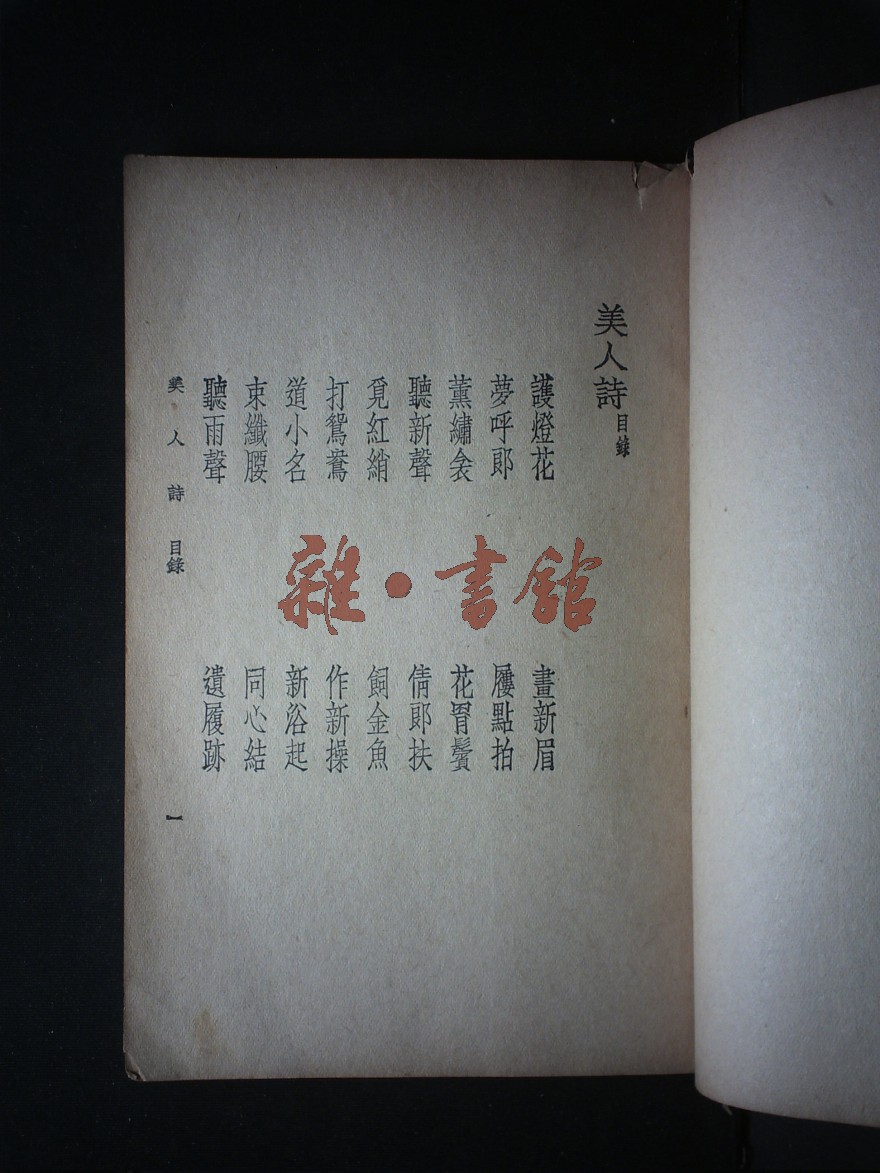 美人詩目錄
護燈花
畫新眉
夢呼郎
屧點拍
薰繡衾
花罥鬢
聽新聲
倩郎扶
覓紅綃
飼金魚
打鴛鴦
作新操
道小名
新浴起
束纖腰
同心結
聽雨聲
遺履跡
美人詩 目錄
一
雜·書館